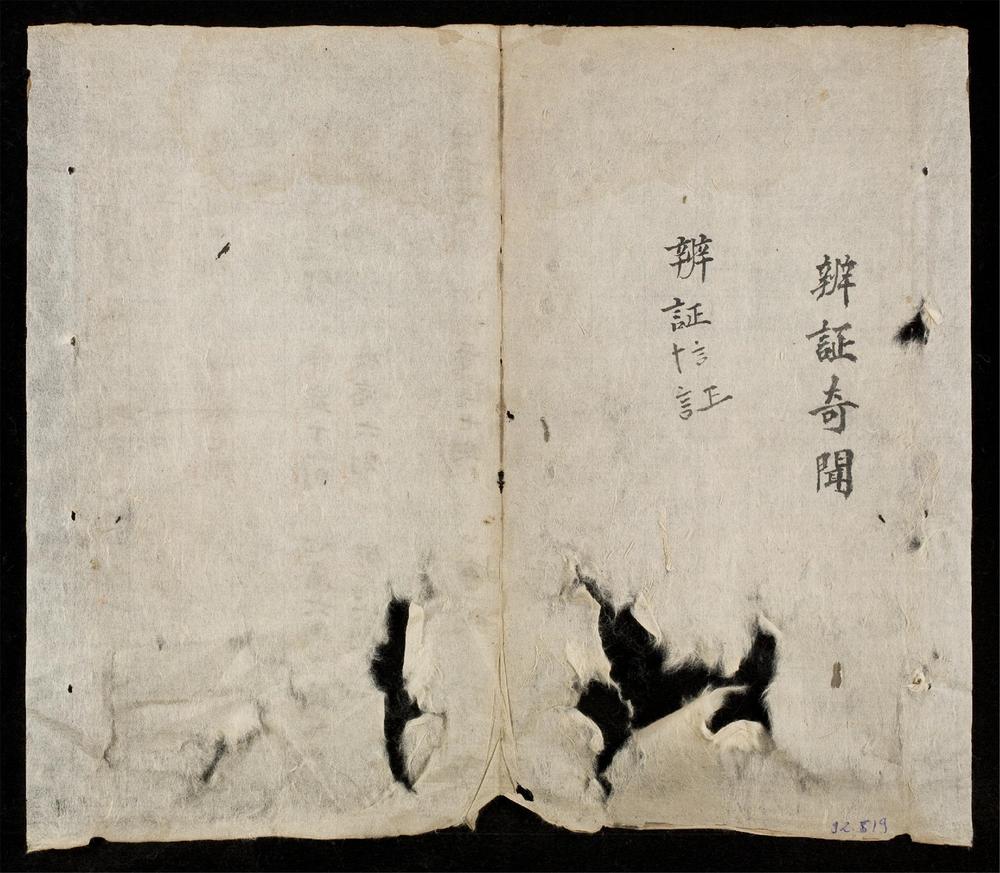 辨証奇聞
辨証忄言言正
92.819